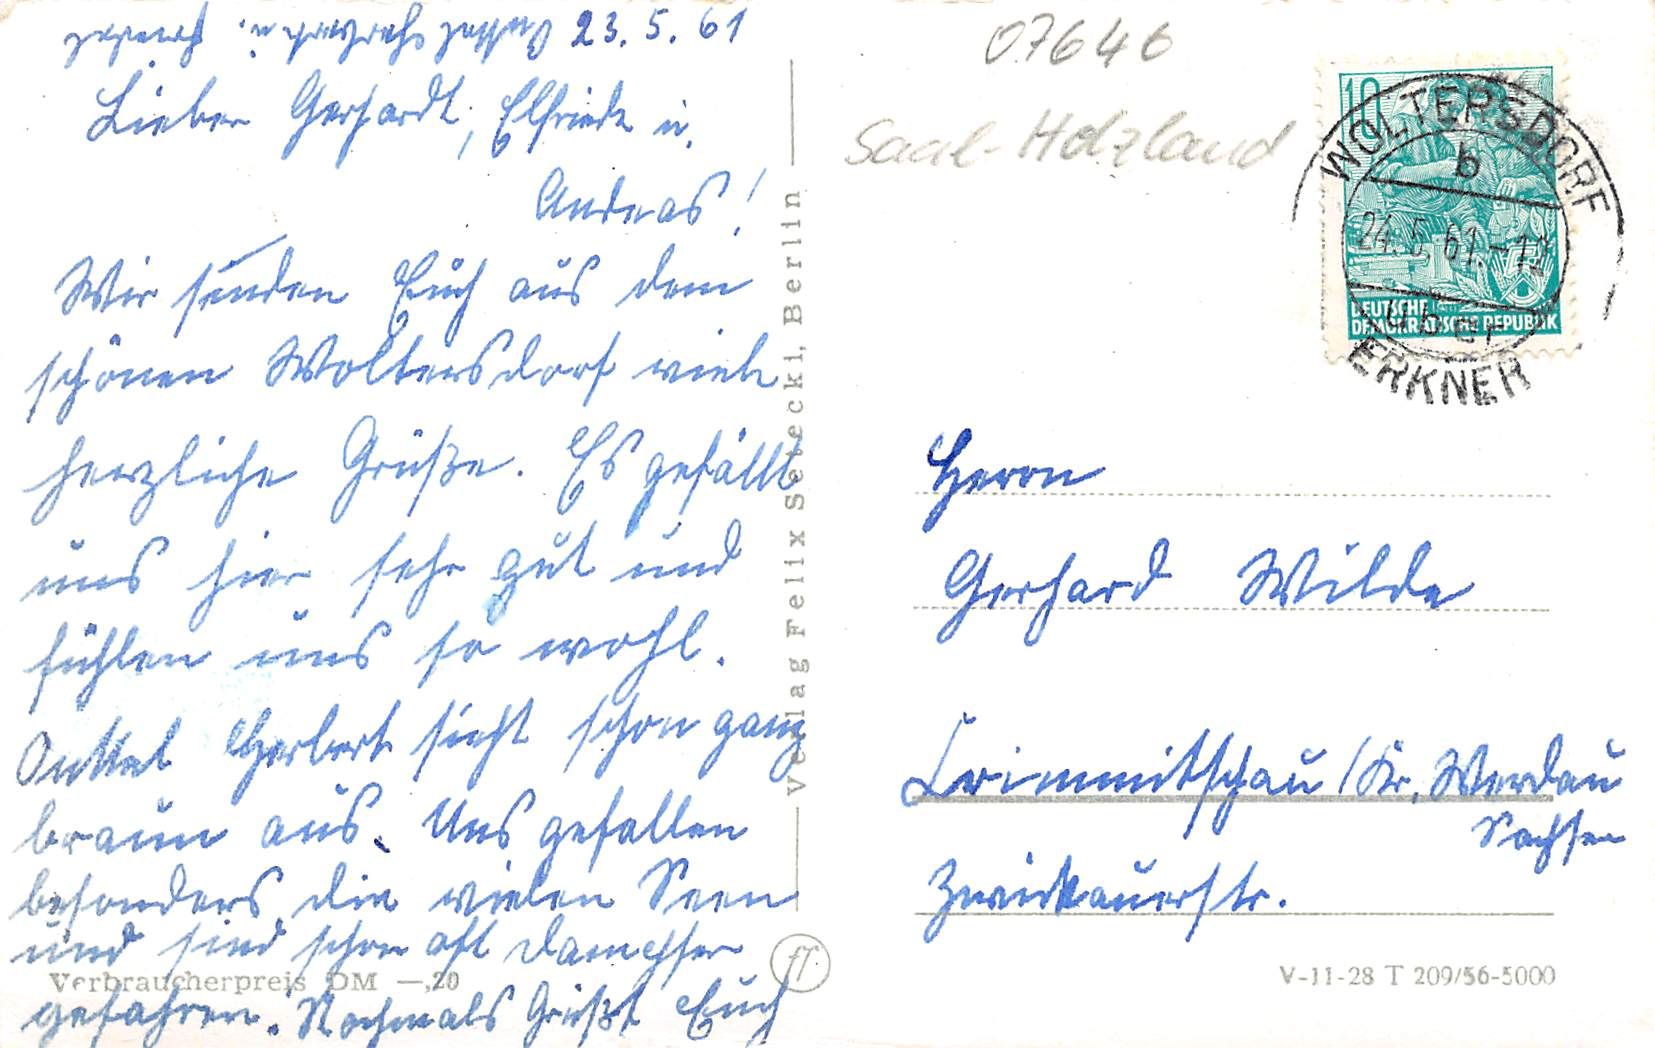 23. 5. 61
Lieber Gerhardt, Elfriede u.
Andreas!
Wir senden Euch aus dem
schönen Woltersdorf viele
herzliche Grüße. Es gefällt
uns hier sehr gut und
fühlen uns so wohl.
Onkel Herbert sieht schon ganz
braun aus. Uns gefallen
besonders die vielen Seen
und sind schon oft Dampfer
gefahren. Nochmals Grüßt Euch
Verbraucherpreis DM —,20
Verlag Felix Setecki, Berlin
07646
Saal-Holzland
10
DEUTSCHE
DEMOKRATISCHE REPUBLIK
WOLTERSDORF
b
24.5.61.-12
über
ERKNER
Herrn
Gerhard Wilde
Crimmitschau / Kr. Werdau
Sachsen
Zwickauerstr.
V-11-28 T 209/56-5000